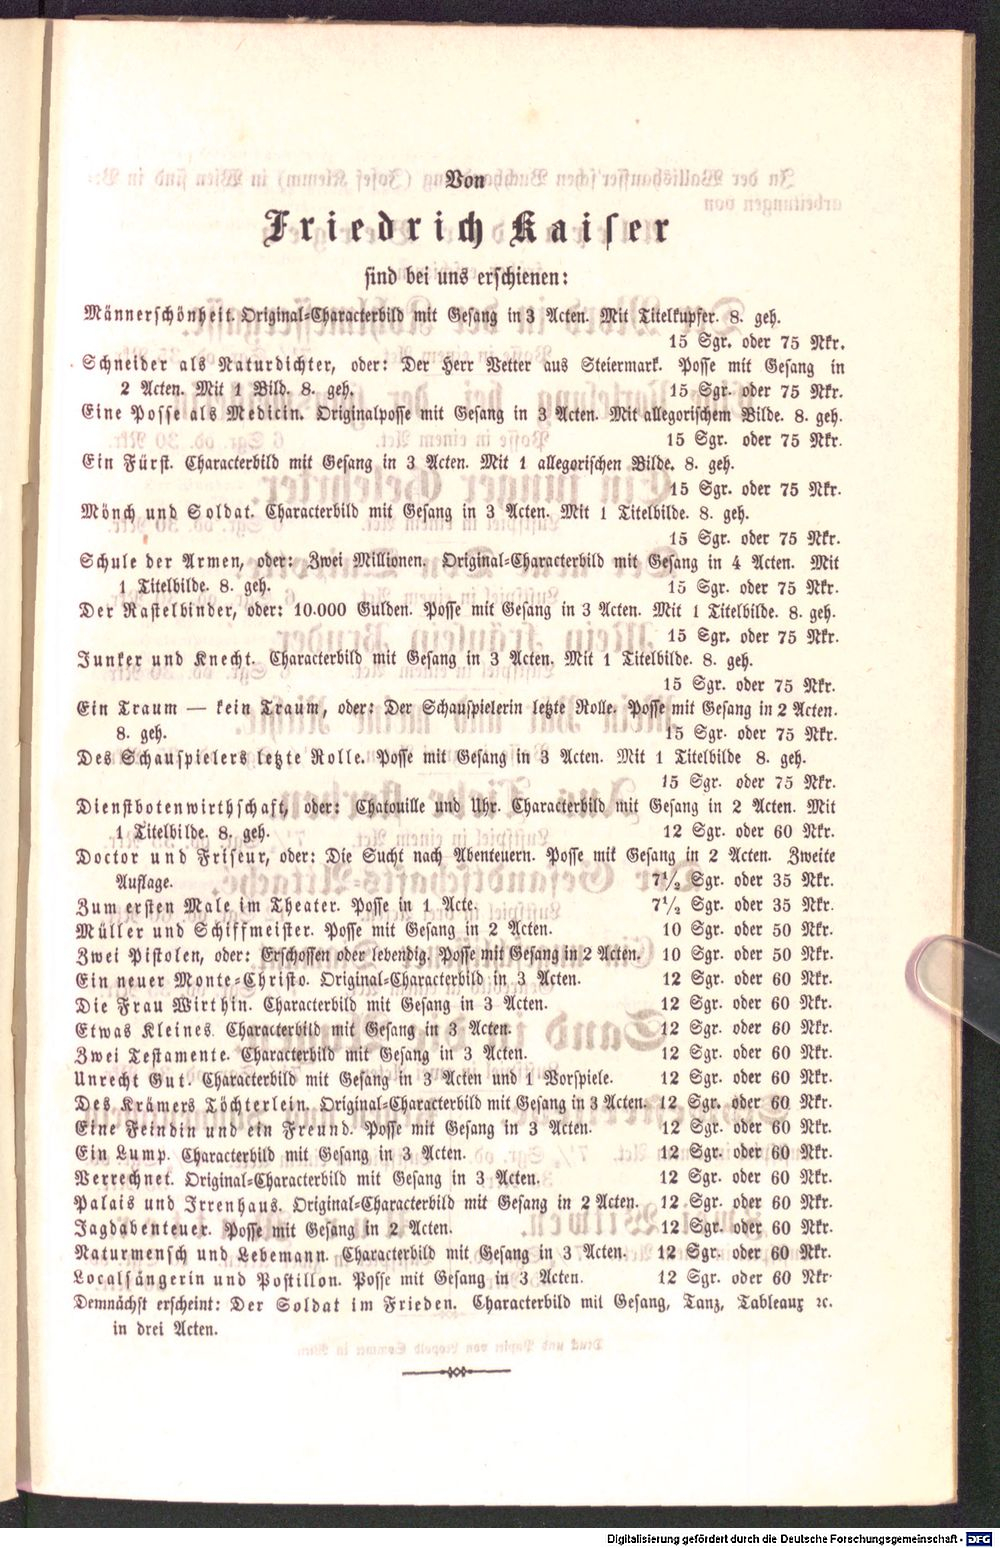 Von
Friedrich Kaiser
sind bei uns erschienen:
Männerschönheit. Original-Characterbild mit Gesang in 3 Acten. Mit Titelkupfer. 8. geh.
15 Sgr. oder 75 Nkr.
Schneider als Naturdichter, oder: Der Herr Vetter aus Steiermark. Posse mit Gesang in
2 Acten. Mit 1 Bild. 8. geh. 15 Sgr. oder 75 Nkr.
Eine Posse als Medicin. Originalposse mit Gesang in 3 Acten. Mit allegorischem Bilde. 8. geh.
15 Sgr. oder 75 Nkr.
Ein Fürst. Characterbild mit Gesang in 3 Acten. Mit 1 allegorischen Bilde. 8. geh.
15 Sgr. oder 75 Nkr.
Mönch und Soldat. Characterbild mit Gesang in 3 Acten. Mit 1 Titelbilde. 8. geh.
15 Sgr. oder 75 Nkr.
Schule der Armen, oder: Zwei Millionen. Original-Characterbild mit Gesang in 4 Acten. Mit
1 Titelbilde. 8. geh. 15 Sgr. oder 75 Nkr.
Der Rastelbinder, oder: 10.000 Gulden. Posse mit Gesang in 3 Acten. Mit 1 Titelbilde. 8. geh.
15 Sgr. oder 75 Nkr.
Junker und Knecht. Characterbild mit Gesang in 3 Acten. Mit 1 Titelbilde. 8. geh.
15 Sgr. oder 75 Nkr.
Ein Traum — kein Traum, oder: Der Schauspielerin letzte Rolle. Posse mit Gesang in 2 Acten.
8. geh. 15 Sgr. oder 75 Nkr.
Des Schauspielers letzte Rolle. Posse mit Gesang in 3 Acten. Mit 1 Titelbilde 8. geh.
15 Sgr. oder 75 Nkr.
Dienstbotenwirthschaft, oder: Chatouille und Uhr. Characterbild mit Gesang in 2 Acten. Mit
1 Titelbilde. 8. geh. 12 Sgr. oder 60 Nkr.
Doctor und Friseur, oder: Die Sucht nach Abenteuern. Posse mit Gesang in 2 Acten. Zweite
Auflage. 7½ Sgr. oder 35 Nkr.
Zum ersten Male im Theater. Posse in 1 Acte. 7½ Sgr. oder 35 Nkr.
Müller und Schiffmeister. Posse mit Gesang in 2 Acten. 10 Sgr. oder 50 Nkr.
Zwei Pistolen, oder: Erschossen oder lebendig. Posse mit Gesang in 2 Acten. 10 Sgr. oder 50 Nkr.
Ein neuer Monte-Christo. Original-Characterbild in 3 Acten. 12 Sgr. oder 60 Nkr.
Die Frau Wirthin. Characterbild mit Gesang in 3 Acten. 12 Sgr. oder 60 Nkr.
Etwas Kleines. Characterbild mit Gesang in 3 Acten. 12 Sgr. oder 60 Nkr.
Zwei Testamente. Characterbild mit Gesang in 3 Acten. 12 Sgr. oder 60 Nkr.
Unrecht Gut. Characterbild mit Gesang in 3 Acten und 1 Vorspiele. 12 Sgr. oder 60 Nkr.
Des Krämers Töchterlein. Original-Characterbild mit Gesang in 3 Acten. 12 Sgr. oder 60 Nkr.
Eine Feindin und ein Freund. Posse mit Gesang in 3 Acten. 12 Sgr. oder 60 Nkr.
Ein Lump. Characterbild mit Gesang in 3 Acten. 12 Sgr. oder 60 Nkr.
Verrechnet. Original-Characterbild mit Gesang in 3 Acten. 12 Sgr. oder 60 Nkr.
Palais und Irrenhaus. Original-Characterbild mit Gesang in 2 Acten. 12 Sgr. oder 60 Nkr.
Jagdabenteuer. Posse mit Gesang in 2 Acten. 12 Sgr. oder 60 Nkr.
Naturmensch und Lebemann. Characterbild mit Gesang in 3 Acten. 12 Sgr. oder 60 Nkr.
Localsängerin und Postillon. Posse mit Gesang in 3 Acten. 12 Sgr. oder 60 Nkr.
Demnächst erscheint: Der Soldat im Frieden. Characterbild mit Gesang, Tanz, Tableaux ꝛc.
in drei Acten.
Digitalisierung gefördert durch die Deutsche Forschungsgemeinschaft - DFG